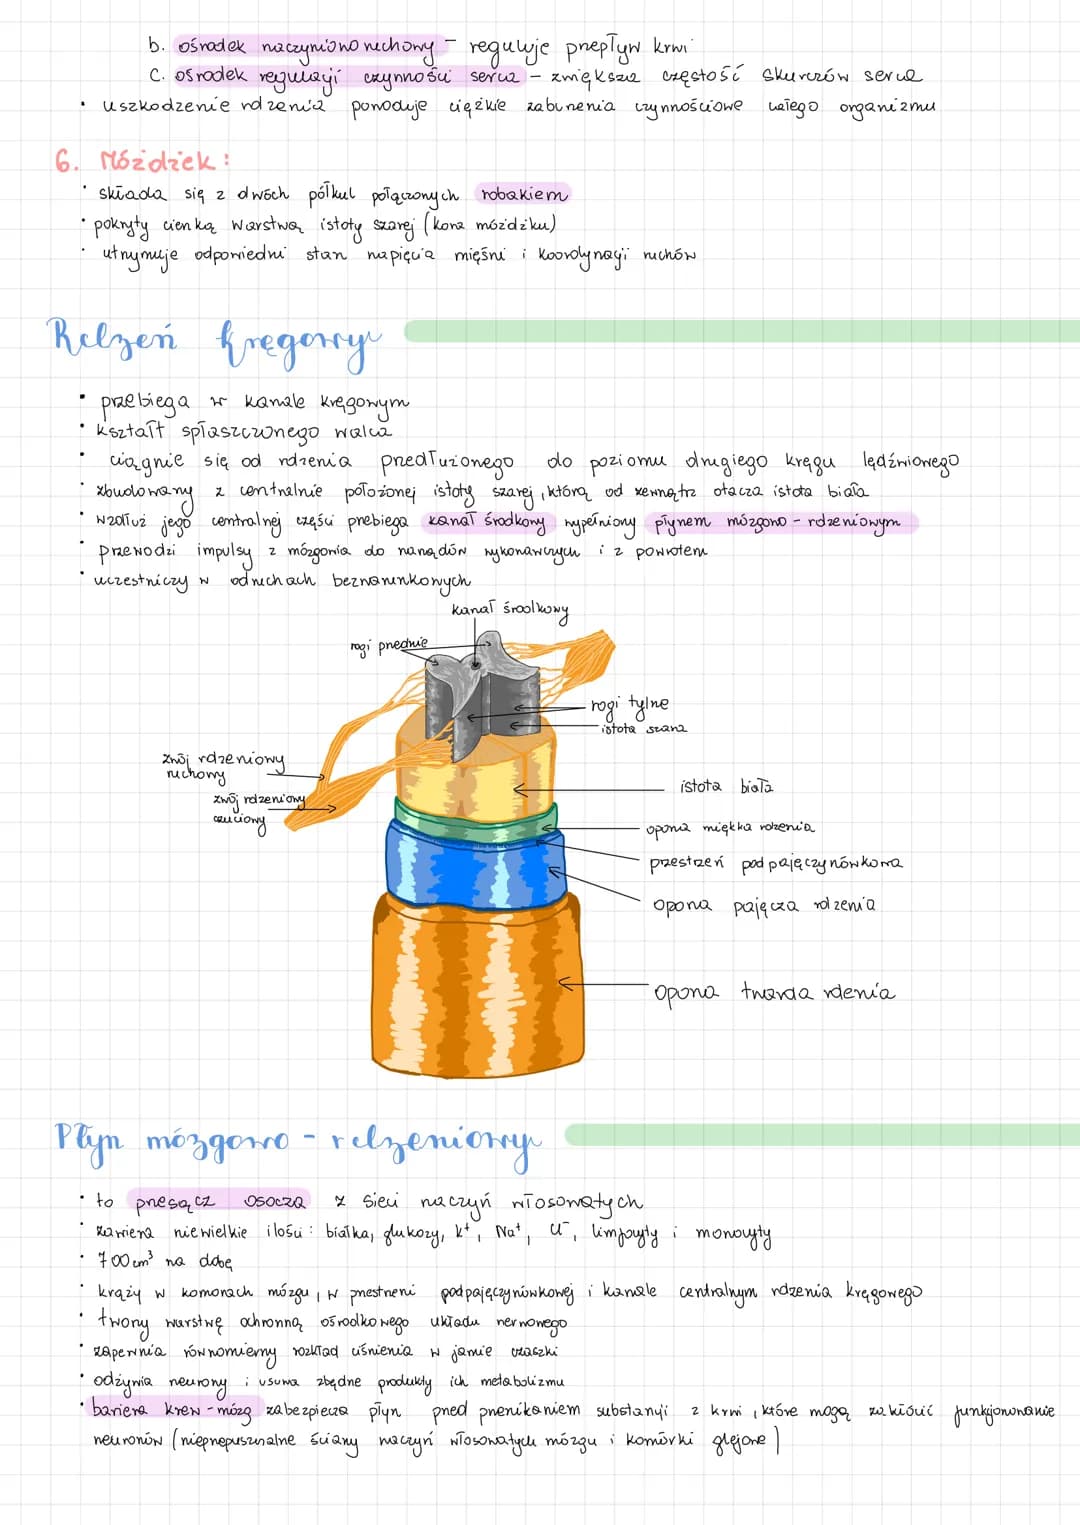 b. ośrodek naczyniowo ruchowy - reguluje przepływ krwi
c. ośrodek regulacji czynności serca - zwiększa częstość skurczów serca
• uszkodzenie rdzenia powoduje ciężkie zaburzenia czynnościowe całego organizmu
6. Móżdżek:
• składa się z dwóch półkul połączonych robakiem
• pokryty cienką warstwą istoty szarej (kora móżdżku)
• utrzymuje odpowiedni stan napięcia mięśni i koordynacji ruchów
Rdzeń kręgowy
• przebiega w kanale kręgowym
• kształt spłaszczonego walca
• ciągnie się od rdzenia przedłużonego do poziomu drugiego kręgu lędźwiowego
• zbudowany z centralnie położonej istoty szarej, którą od zewnątrz otacza istota biała
• wzdłuż jego centralnej części przebiega kanał środkowy wypełniony płynem mózgowo-rdzeniowym
• przewodzi impulsy z mózgowia do narządów wykonawczych i z powrotem
• uczestniczy w odruchach bezwarunkowych
kanał środkowy
rogi przednie
rogi tylne
istota szara
zwój rdzeniowy
ruchowy
zwój rdzeniowy
czuciowy
istota biała
opona miękka rdzenia
przestrzeń podpajęczynówkowa
opona pajęcza rdzenia
opona twarda rdenia
Płyn mózgowo-rdzeniowy
• to przesącz osocza z sieci naczyń włosowatych
• zawiera niewielkie ilości: białka, glukozy, K⁺, Na⁺, Cl⁻, limfocyty i monocyty
• 700 cm³ na dobę
• krąży w komorach mózgu, w przestrzeni podpajęczynówkowej i kanale centralnym rdzenia kręgowego
• tworzy warstwę ochronną ośrodkowego układu nerwowego
• zapewnia równomierny rozkład ciśnienia w jamie czaszki
• odżywia neurony i usuwa zbędne produkty ich metabolizmu
• bariera krew-mózg zabezpiecza płyn przed przenikaniem substancji z krwi, które mogą zakłócić funkcjonowanie
neuronów (nieprzepuszczalne ściany naczyń włosowatych mózgu i komórki glejowe)